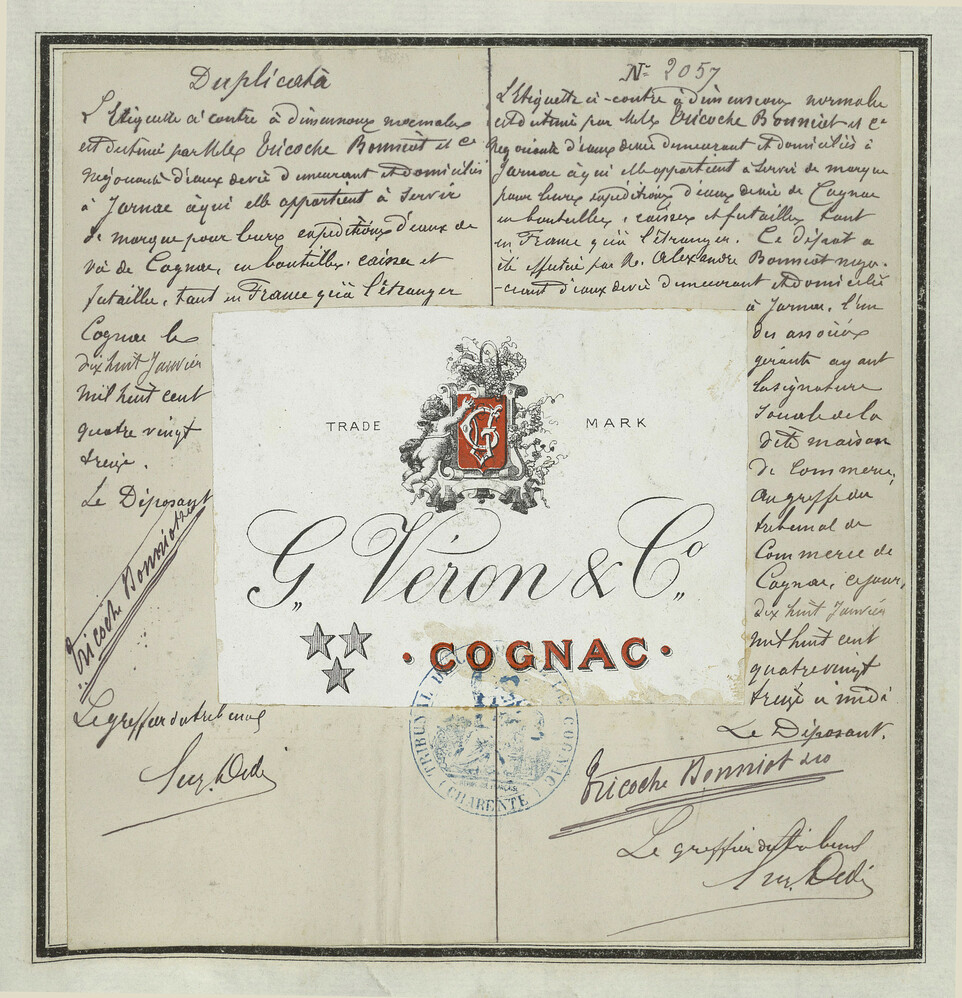 Duplicata
L'Etiquette ci contre à dimensions normales
est destinée par MMrs Tricoche Bonniot et Cie
négociants d'eaux de vie demeurant et domiciliés
à Jarnac à qui elle appartient à servir
de marque pour leurs expéditions d'eaux de
vie de Cognac, en bouteilles, caisses et
futailles, tant en France qu'à l'étranger
Cognac le
dix huit Janvier
mil huit cent
quatre vingt
treize.
Le Déposant
Tricoche Bonniot & Co
Le greffier du tribunal
No 2057
L'Etiquette ci-contre à dimensions normales
est destinée par MMrs Tricoche Bonniot et Ce
négociants d'eaux de vie demeurant et domiciliés à
Jarnac à qui elle appartient à servir de marque
pour leurs expéditions d'eaux de vie de Cognac
en bouteilles, caisses et futailles tant
en France qu'à l'étranger. Ce dépôt a
été effectué par M. Alexandre Bonniot négo-
-ciant d'eaux de vie demeurant et domicilié
à Jarnac, l'un
des associés
gérants ayant
la signature
sociale de la
dite maison
de Commerce,
au greffe du
tribunal de
Commerce de
Cognac, ce jour,
dix huit Janvier
mil huit cent
quatre vingt
treize à midi
Le Déposant.
Tricoche Bonniot & Co
Le greffier du tribunal
TRADE MARK
G. Véron & Co
COGNAC
TRIBUNAL DE COGNAC
(CHARENTE)